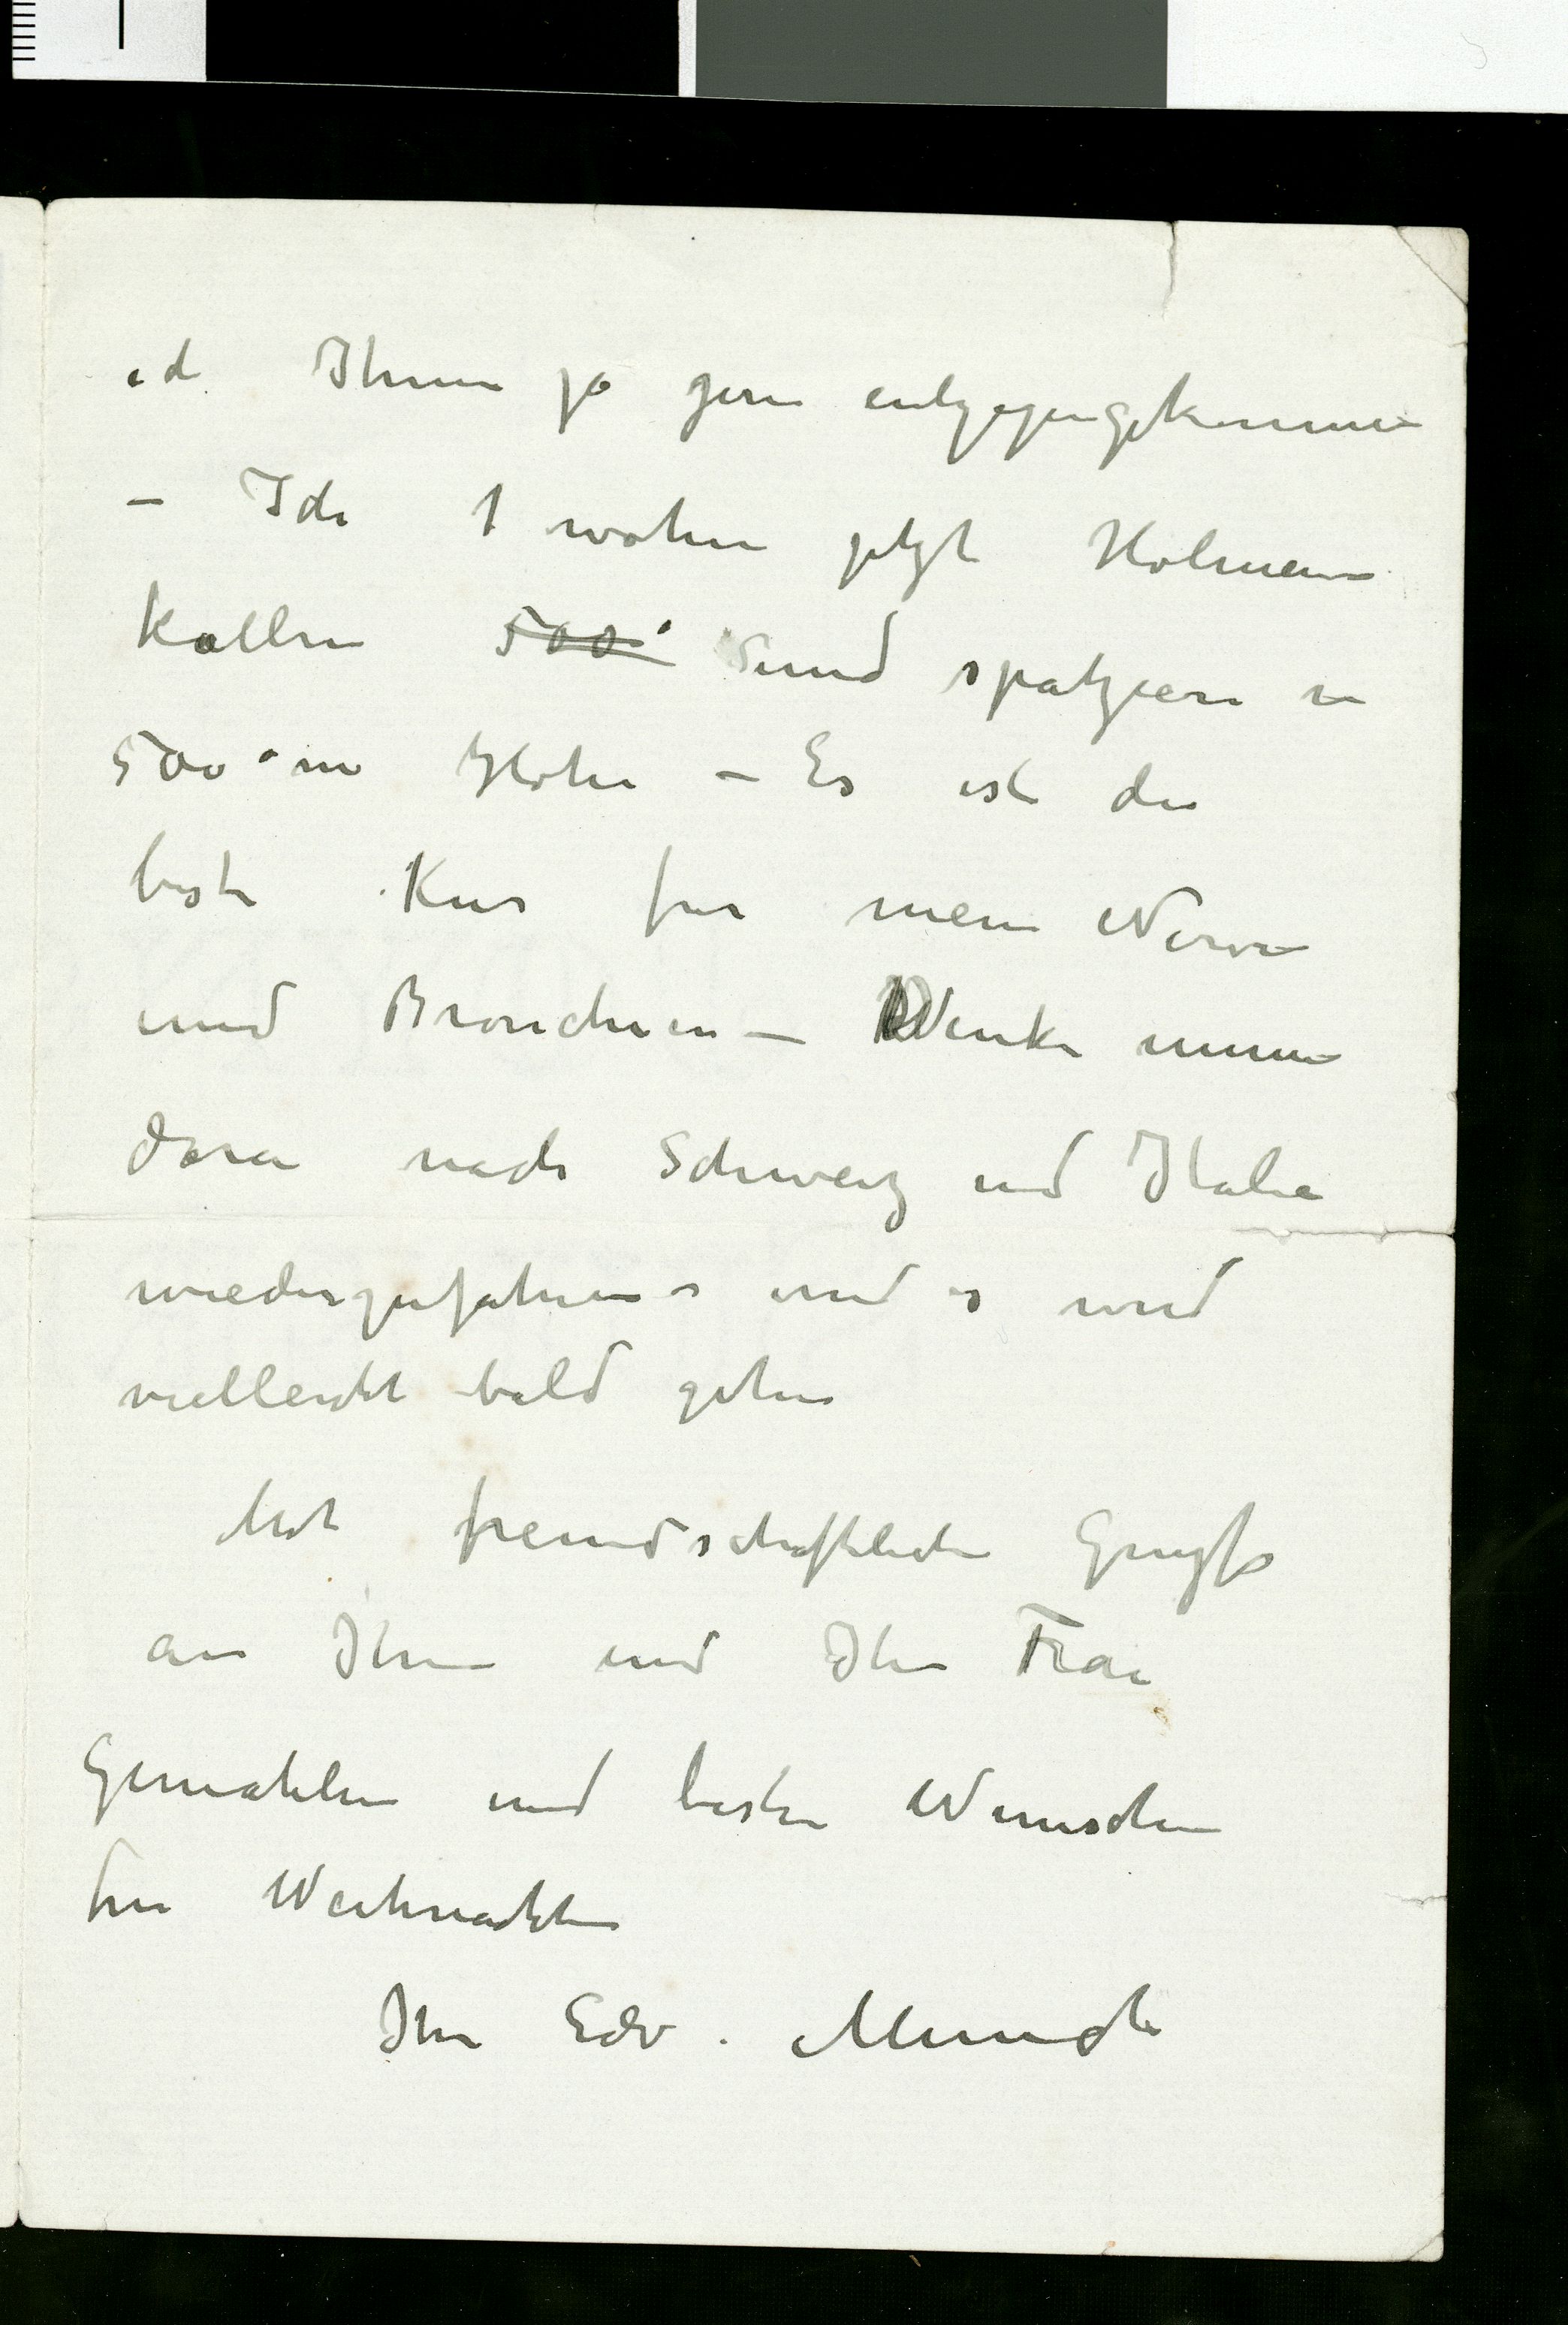 ich Ihnen ja gern entgegengekommen
– Ich wohne jetzt Holmen
kollen 500 und spatziere in
500 m Höhe – Es ist die
beste Kur fur meine Nerven
und Bronchien – Denke immer
daran nach Schweiz und Italien
wiederzufahren und es wird
vielleicht bald gehen
Mit freundschaftlichen Grüsse
an Ihnen und Ihre Frau
Gemahlin und besten Wunschen
fur Weihnachten
Ihr Edv. Munch